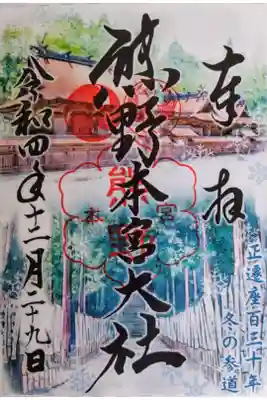 奉拝
熊野本宮大社
令和四年十二月二十九日
正遷座百三十年
冬の参道
熊野
本宮